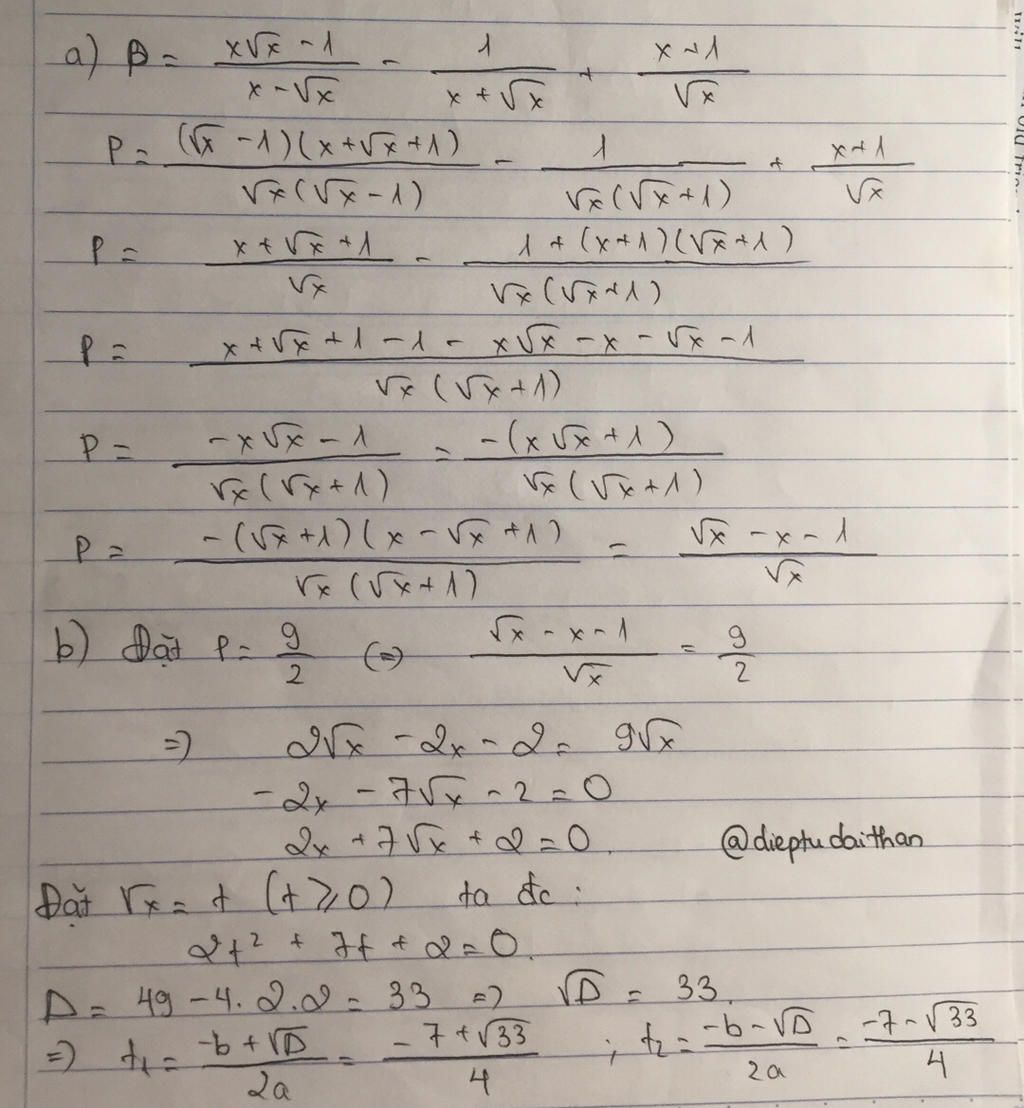 a) P = \frac{x\sqrt{x} - 1}{x - \sqrt{x}} - \frac{1}{x + \sqrt{x}} + \frac{x + 1}{\sqrt{x}}
P = \frac{(\sqrt{x} - 1)(x + \sqrt{x} + 1)}{\sqrt{x}(\sqrt{x} - 1)} - \frac{1}{\sqrt{x}(\sqrt{x} + 1)} + \frac{x + 1}{\sqrt{x}}
P = \frac{x + \sqrt{x} + 1}{\sqrt{x}} - \frac{1 + (x + 1)(\sqrt{x} + 1)}{\sqrt{x}(\sqrt{x} + 1)}
P = \frac{x + \sqrt{x} + 1 - 1 - x\sqrt{x} - x - \sqrt{x} - 1}{\sqrt{x}(\sqrt{x} + 1)}
P = \frac{-x\sqrt{x} - 1}{\sqrt{x}(\sqrt{x} + 1)} = \frac{-(x\sqrt{x} + 1)}{\sqrt{x}(\sqrt{x} + 1)}
P = \frac{-(\sqrt{x} + 1)(x - \sqrt{x} + 1)}{\sqrt{x}(\sqrt{x} + 1)} = \frac{\sqrt{x} - x - 1}{\sqrt{x}}
b) Đặt P = \frac{9}{2} (=) \frac{\sqrt{x} - x - 1}{\sqrt{x}} = \frac{9}{2}
=) 2\sqrt{x} - 2x - 2 = 9\sqrt{x}
-2x - 7\sqrt{x} - 2 = 0
2x + 7\sqrt{x} + 2 = 0. @dieptudaithan
Đặt \sqrt{x} = t (t ⩾ 0) ta đc :
2t² + 7t + 2 = 0.
D = 49 - 4.2.2 = 33 =) \sqrt{D} = 33.
=) t₁ = \frac{-b + \sqrt{D}}{2a} = \frac{-7 + \sqrt{33}}{4} ; t₂ = \frac{-b - \sqrt{D}}{2a} = \frac{-7 - \sqrt{33}}{4}